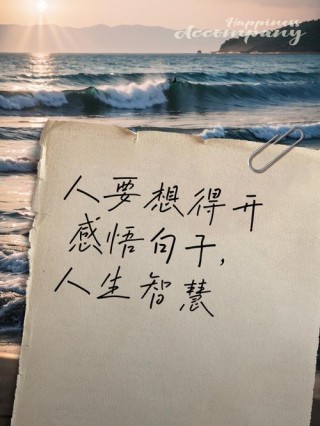 Happiness
Accompany
人要想得开
感悟句子,
人生智慧